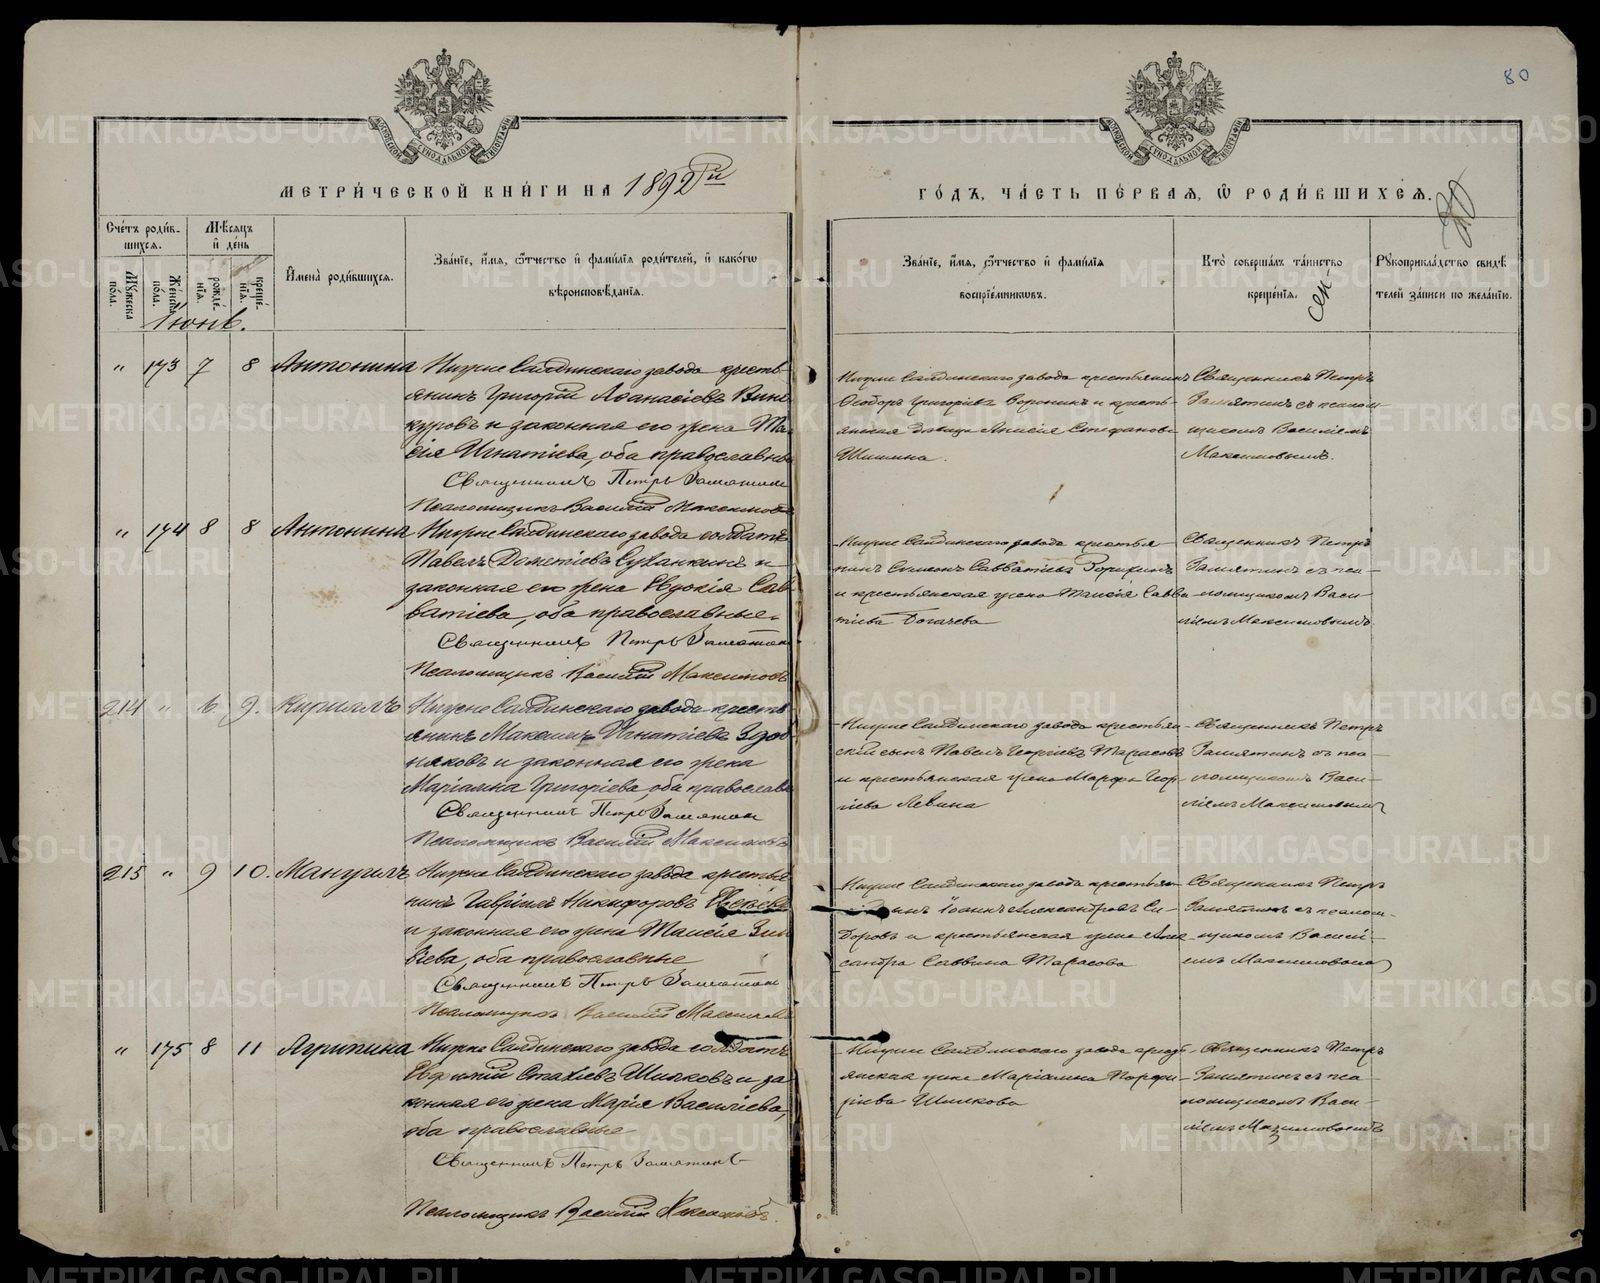 80
МЕТРИ́ЧЕСКОЙ КНИ́ГИ НА 1892 ГО́ДЪ, ЧА́СТЬ ПЕ́РВАЯ, Ѡ РОДИ́ВШИХСЯ.
Сче́тъ роди́в-
шихся.
Мѣ́сяцъ
и҆ де́нь
Мꙋжеска по́ла.
Же́нска по́ла.
рожде́-
нїѧ.
креще́-
нїѧ.
И҆мена̀ роди́вшихся.
Зва́нїе, и҆́мя, ѻ҆́тчество и҆ фами́лїя роди́телей, и҆ како́гѡ
вѣроисповѣ́данїя.
Зва́нїе, и҆́мя, ѻ҆́тчество и҆ фами́лїя
воспрїе́мникѡвъ.
Кто̀ соверша́лъ та́инство
креще́нїя.
Рꙋкоприкла́дство свидѣ́-
телей за́писи по жела́нїю.
Іюнь.
" 173 7 8 Антонина
Нижне Салдинскаго завода кресть-
янинъ Григорій Аѳанасіевъ Вино
куровъ и законная его жена Та-
исія Игнатіева, оба православные
Священникъ Петръ Замятин
Псаломщикъ Василій Максимовъ
Нижне Салдинскаго завода крестьянинъ
Ѳеодоръ Григоріевъ Воронинъ и кресть-
янская дѣвица Анисія Стефанова
Шишина.
Священникъ Петръ
Замятинъ съ псалом-
щикомъ Василіемъ
Максимовымъ.
" 174 8 8 Антонина
Нижне Салдинскаго завода солдатъ
Павелъ Дометіевъ Суханкинъ и
законная его жена Евдокія Сав
ватіева, оба православные.
Священникъ Петръ Замятин
Псаломщикъ Василій Максимовъ
Нижне Салдинскаго завода крестья-
нинъ Симеонъ Савватіевъ Горкинъ
и крестьянская жена Таисія Савва
тіева Богачева
Священникъ Петръ
Замятинъ съ пса-
ломщикомъ Васи-
ліемъ Максимовымъ.
214 " 6 9. Кириллъ
Нижне Салдинскаго завода кресть
янинъ Максимъ Игнатіевъ Здоб
няковъ и законная его жена
Маріамна Григоріева, оба православн
Священникъ Петръ Замятин
Псаломщикъ Василій Максимовъ
Нижне Салдинскаго завода крестьян-
скій сынъ Павелъ Георгіевъ Тарасовъ
и крестьянская жена Марфа Геор-
гіева Левина
Священникъ Петръ
Замятинъ съ пса-
ломщикомъ Васи-
ліемъ Максимовымъ
215 " 9 10. Мануилъ
Нижне Салдинскаго завода крестья
нинъ Гавріилъ Никифоровъ
и законная его жена Таисія Зи
віева, оба православные
Священникъ Петръ Замятин
Псаломщикъ Василій Максимовъ
Нижне Салдинскаго завода крестьян-
Іоаннъ Александровъ Си-
доровъ и крестьянская жена Алек
сандра Саввина Тарасова
Священникъ Петръ
Замятинъ съ псалом-
щикомъ Васил-
емъ Максимовымъ
" 175 8 11 Агрипина
Нижне Салдинскаго завода солдатъ
Евфимій Стахіевъ Шилковъ и за
конная его жена Марія Василіева,
оба православные
Священникъ Петръ Замятинъ
Псаломщикъ Василій Максимовъ.
Нижне Салдинскаго завода кресть-
янская жена Маріамна Порфи-
ріева Шилкова
Священникъ Петръ
Замятинъ съ пса-
ломщикомъ Васи-
ліемъ Максимовымъ
METRIKI.GASO-URAL.RU